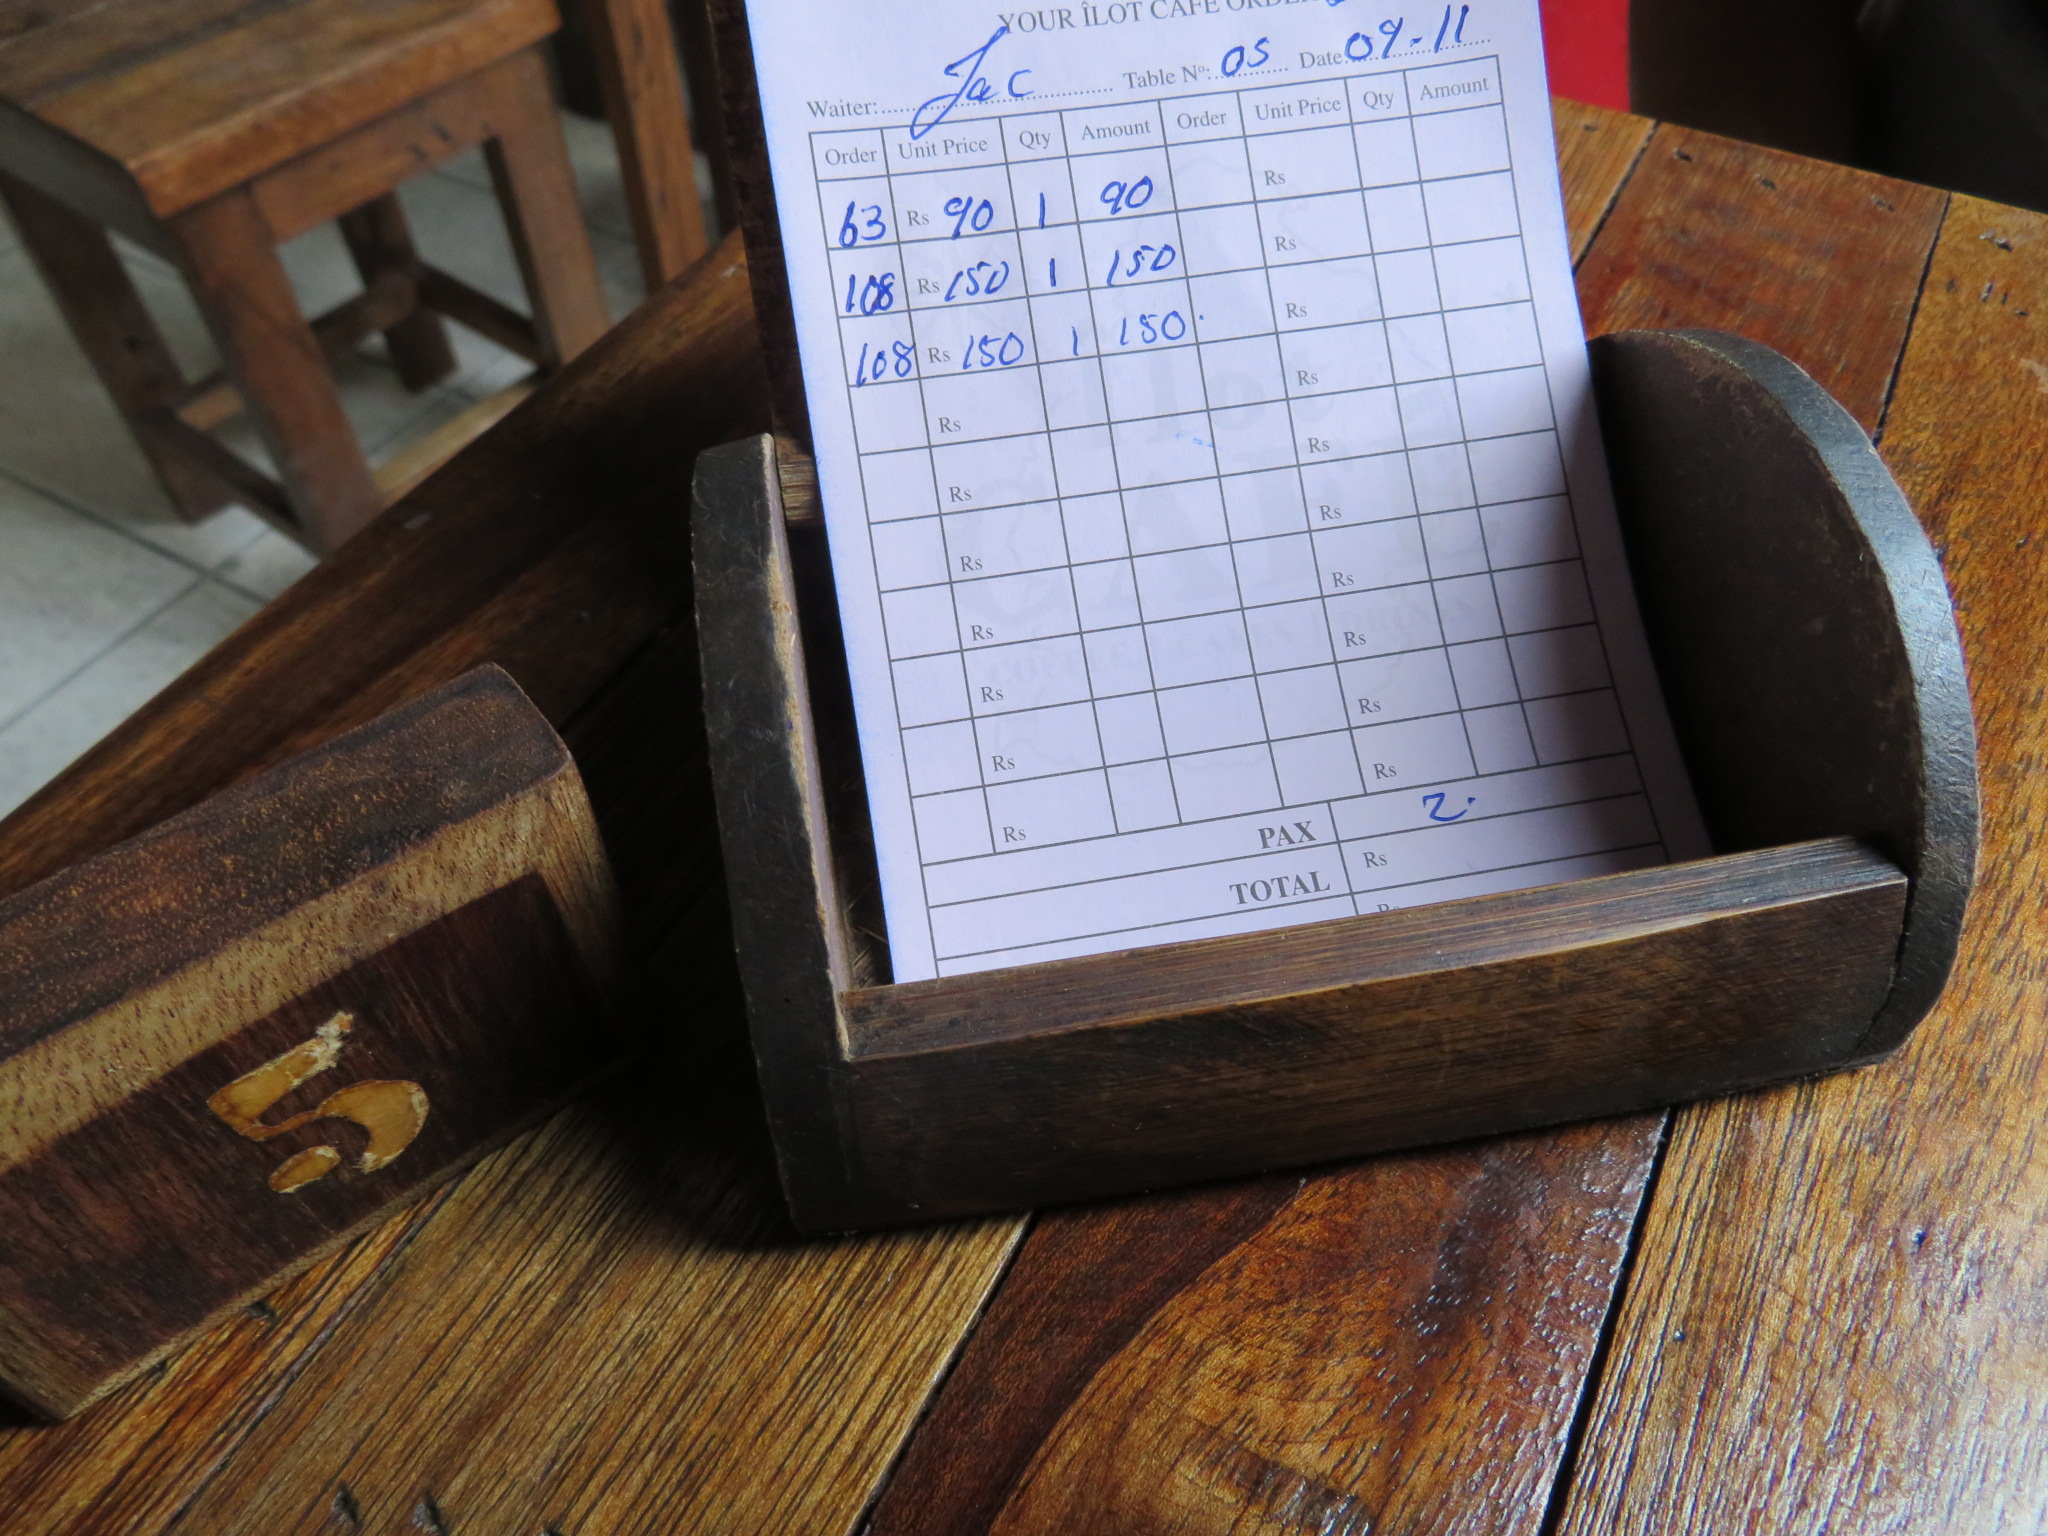 YOUR ÎLOT CAFE ORDER
Waiter: Jac Table Nº: 05 Date 09-11
Order Unit Price Qty Amount Order Unit Price Qty Amount
63 Rs 90 1 90 Rs
108 Rs 150 1 150 Rs
108 Rs 150 1 150 Rs
Rs Rs
Rs Rs
Rs Rs
Rs Rs
Rs Rs
Rs Rs
Rs Rs
PAX 2
TOTAL Rs
Rs
5